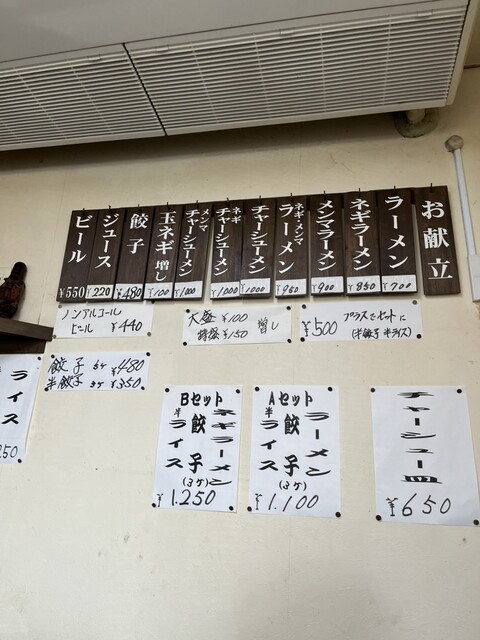 お献立
ラーメン
¥700
ネギラーメン
¥850
メンマラーメン
¥900
ネギ・メンマ
ラーメン
¥950
チャーシューメン
¥1000
ネギ
チャーシューメン
¥1000
メンマ
チャーシューメン
¥1000
玉ネギ増し
¥100
餃子
¥480
ジュース
¥220
ビール
¥550
¥500 プラスでセットに
(半餃子 半ライス)
大盛 ¥100
特盛 ¥150 増し
ノンアルコール
ビール ¥440
餃子 5ケ ¥480
半餃子 3ケ ¥350
チャーシュー皿
¥650
Aセット
ラーメン
餃子
(3ケ)
半ライス
¥1.100
Bセット
ネギラーメン
餃子
(3ケ)
半ライス
¥1.250
ライス
250